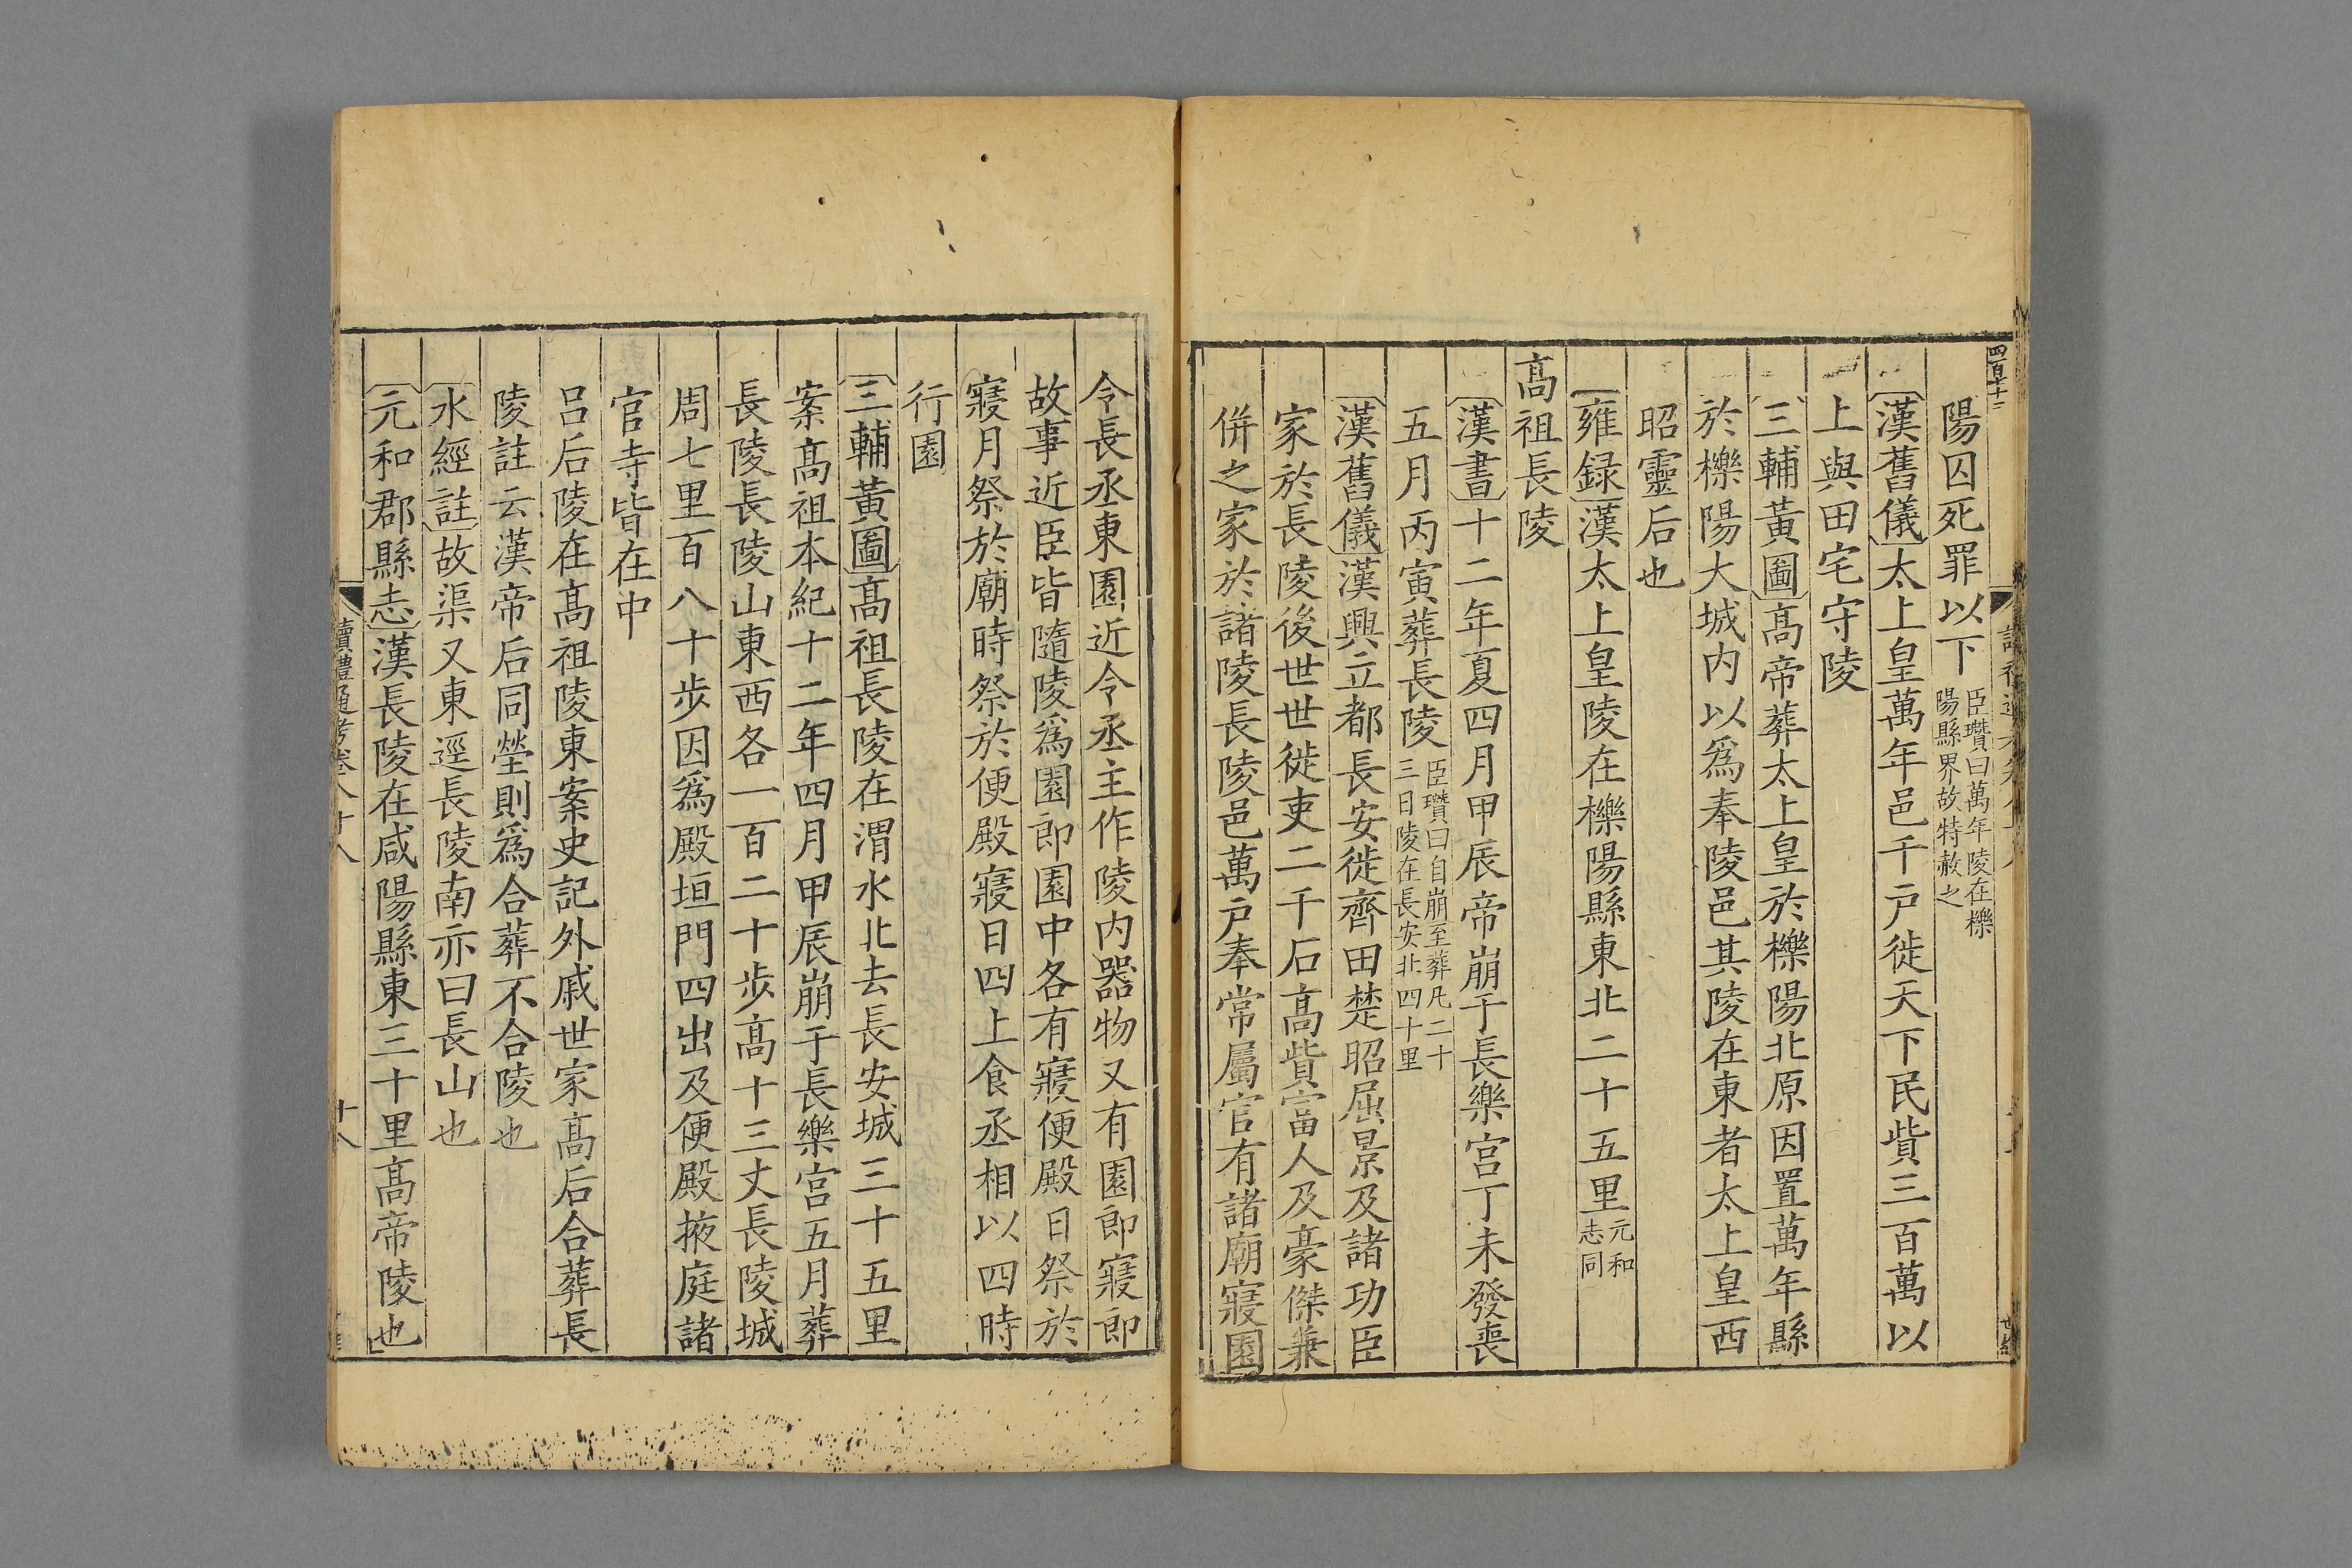 陽囚死罪以下臣瓚曰萬年陵在櫟陽縣界故特赦之
漢舊儀太上皇萬年邑千戸徙天下民貲三百萬以
上與田宅守陵
三輔黃圖高帝葬太上皇於櫟陽北原因置萬年縣
於櫟陽大城内以爲奉陵邑其陵在東者太上皇西
昭靈后也
雍録漢太上皇陵在櫟陽縣東北二十五里元和志同
高祖長陵
漢書十二年夏四月甲辰帝崩于長樂宫丁未發喪
五月丙寅葬長陵臣瓚曰自崩至葬凡二十三日陵在長安北四十里
漢舊儀漢興立都長安徙齊田楚昭屈景及諸功臣
家於長陵後世世徙吏二千石高貲富人及豪傑兼
併之家於諸陵長陵邑萬戸奉常屬官有諸廟寢園
令長丞東園近令丞主作陵内器物又有園郎寢郎
故事近臣皆隨陵爲園郎園中各有寢便殿日祭於
寢月祭於廟時祭於便殿寢日四上食丞相以四時
行園
三輔黃圖高祖長陵在渭水北去長安城三十五里
案高祖本紀十二年四月甲辰崩于長樂宫五月葬
長陵長陵山東西各一百二十步高十三丈長陵城
周七里百八十步因爲殿垣門四出及便殿掖庭諸
官寺皆在中
吕后陵在高祖陵東案史記外戚世家高后合葬長
陵註云漢帝后同塋則爲合葬不合陵也
水經註故渠又東逕長陵南亦曰長山也
元和郡縣志漢長陵在咸陽縣東三十里高帝陵也
讀禮通考卷八十八
十八